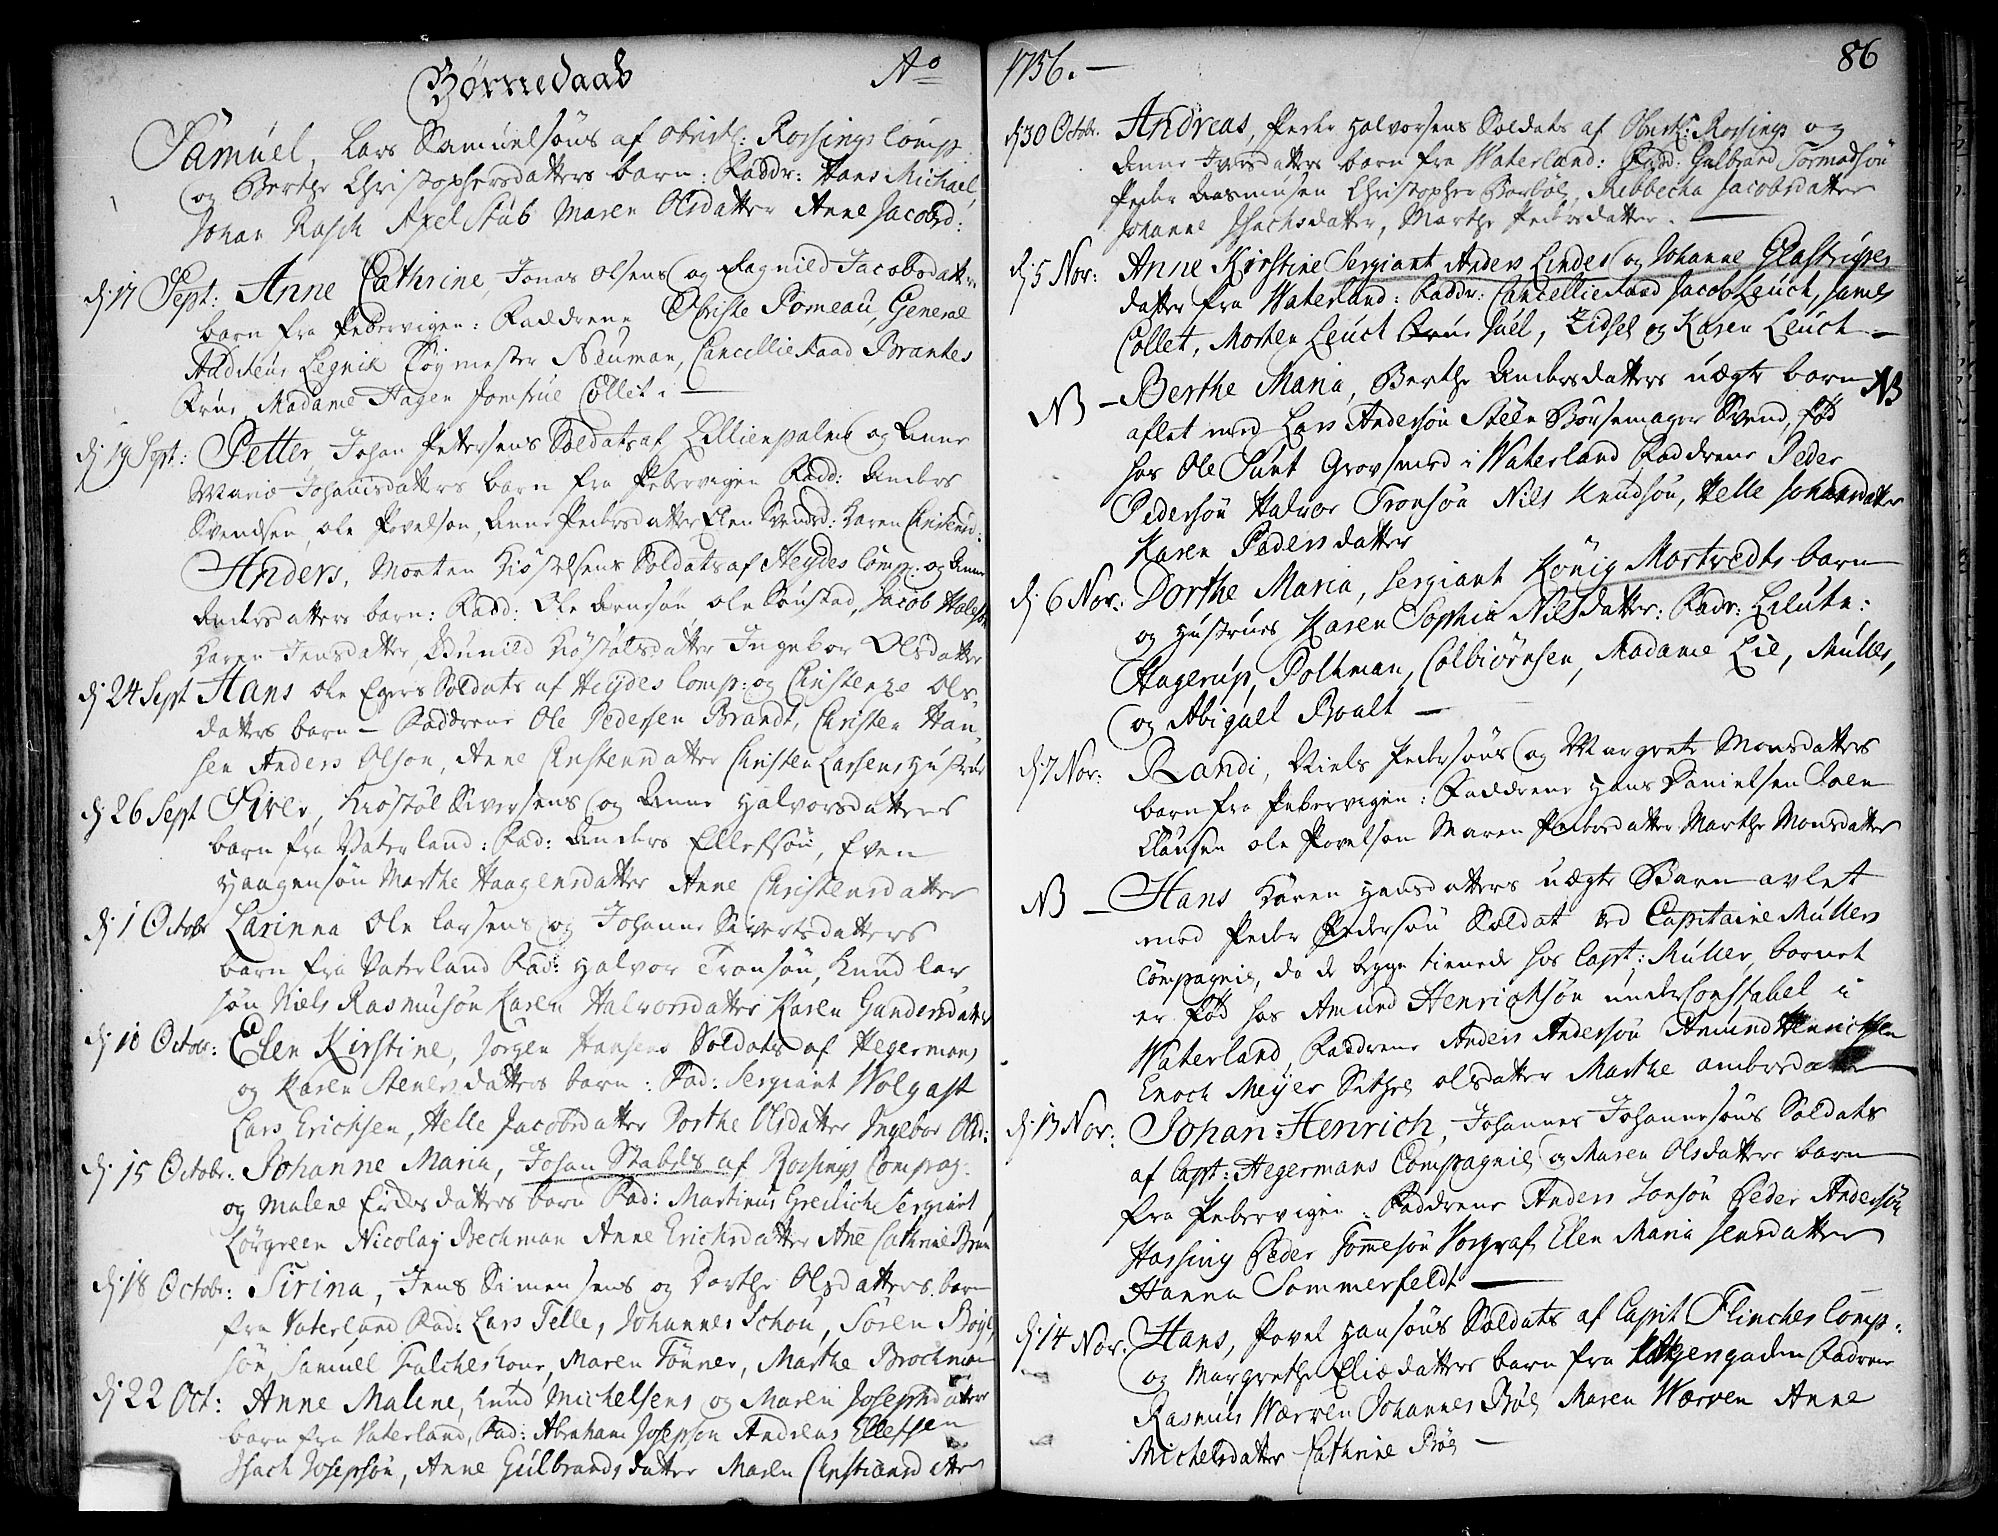 Børnedaab Ao
Samuel, Lars Samuelsøns af Obristl: Rossings Comp:
og Berthe Christophersdatters barn: Faddr: Hans Michael,
Johan Rasch Axel Stub Maren Olsdatter Anne Jacobsd:
d: 17 Sept: Anne Cathrine, Jonas Olsens og Ragnild Jacobsdatters
barn fra Pebervigen: Faddrene Obriste Pomeau, General
Auditeur Legnik Tøymester Neuman, Cancellieraad Brantes
Frue, Madame Hagen Jomfrue Collet: —
d: 19 Sept: Petter, Johan Petersens Soldats af Lillienpalms og Anne
Marie Johansdatters barn fra Pebervigen Fadd: Anders
Svendsen, Ole Povelsøn, Anne Pedersdatter Elen Svendsd: Karen Christensd:
Anders, Morten Kiøstelsens Soldats af Heydes Comp: og Anne
Andersdatters barn: Fadd: Ole Arnesøn, Ole Sønstad, Jacob
Karen Jensdatter, Gunild Kiøstølsdatter Ingebor Olsdatter
d: 24 Sept Hans Ole Egers Soldats af Heydes Comp: og Christenze Ols-
datters barn — Faddrene Ole Pedersen Brandt, Christen Han-
sen Anders Olson, Anne Christensdatter Christen Larsens Hustrue
d: 26 Sept Siver, Kiøstøl Siversens og Anne Halvorsdatters
barn fra Vaterland: Fad: Anders Ellefsøn, Even
Haagensøn Marthe Haagensdatter Anne Christensdatter
d: 1 Octobr Larinna Ole Larsens og Johanne Sivertsdatters
barn fra Vaterland Fad: Halvor Tronsøn, Knud Lar
søn Niels Rasmusøn Karen Halvorsdatter Karen Gundersdatter
d: 10 Octobr: Elen Kirstine, Jørgen Hansens Soldats af Hegermans
og Karen Stenersdatters barn: Fad: Sergiant Wolgast
Lars Erichsen, Helle Jacobsdatter Dorthe Olsdatter Ingebor Olsd:
d: 15 Octobr: Johanne Maria, Johan Stabels af Rossings Compag:
og Malene Eridsdatters barn Fad: Martinus Greilich Sergiant
Lørgreen Nicolaj Bechman Anne Erichsdatter Ane Cathrine Brun
d: 18 Octobr: Sirina, Jens Simensens og Dorthe Olsdatters barn
fra Vaterland Fad: Lars Telle, Johannes Schou, Søren Bøye
søn, Samuel Falcheskour, Maren Tønner, Marthe Brochman
d: 22 Oct: Anne Malene, Knud Michelsens og Maren Josephsdatters
barn fra Vaterland, Fad: Abraham Josepson Andreas Ellefsen
Isach Josepsøn, Anne Gulbrandsdatter Maren Christiansdatter
1756. — 86
d: 30 Octobr. Andreas, Peder Halvorsens Soldats af Obristl: Rossings og
Anne Iversdatters barn fra Waterland: Fadd: Gulbrand Tormodsøn
Peder Rasmusen Christopher Borbøl, Rebbecha Jacobsdatter
Johanne Isachsdatter, Marthe Pedersdatter. —
d: 5 Nov: Anne Kirstine Sergiant Anders Lindes og Johanne Glastrups
datter fra Waterland: Faddr: Cancellieraad Jacob Leuch, James
Collet, Morten Leuct Frue Juel, Zidsel og Karen Leuch —
NB — Berthe Maria, Berthe Andersdatters uægte barn NB
aflet med Lars Andersøn Steen Børsemager Svend, fød
hos Ole Sunt Grovsmed i Waterland Faddrene Peder
Pedersøn Halvor Tronsøn Nils Knudsøn, Helle Johansdatter
Karen Pedersdatter
d: 6 Nov: Dorthe Maria, Sergiant König Mortvedts barn
og Hustrues Karen Sophia Nilsdatter: Fadr: Lieute:
Hagerup, Poltman, Colbiørnsen, Madame Lie, Müller,
og Abigael Boalt —
d: 7 Nov: Randi, Niels Pedersøns og Margrete Monsdatters
barn fra Pebervigen: Faddrene Hans Danielsen
Clausen Ole Povelsøn Maren Pedersdatter Marthe Monsdatter
NB — Hans Karen Hansdatters uægte Barn avlet
med Peder Pedersøn Soldat ved Capitaine Müllers
Compagnie, da de begge tienede hos Capt: Müller, barnet
er fød hos Amund Henrichsøn underconstabel i
Waterland, Faddrene Anders Andersøn Amund Henrichsen
Enoch Meyer Sitzel Olsdatter Marthe Ambrsdatter
d: 13 Nov: Johan Henrich, Johannes Johannesøns Soldats
af Capt: Hegermans Compagnie og Maren Olsdatters barn
fra Pebervigen: Faddrene Anders Jonsøn Peder Andersøn
Hassing Peder Tomesøn Vorgraf Elen Maria Jensdatter
Hanna Sommerfeldt —
d: 14 Nov: Hans, Povel Hansøns Soldats af Capit Flinches Comp:
og Margrethe Eliædatters barn fra gaden Fadrene
Rasmus Wærven Johannes Bøe Maren Wærven Anne
Michelsdatter Cathrine Bøe —